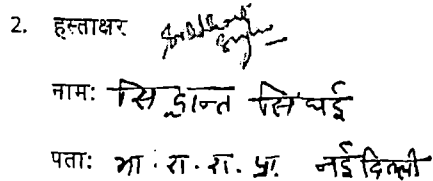 2. हस्ताक्षर
नाम: सिद्धान्त सिंघई
पता: भा. रा. रा. प्रा. नई दिल्ली